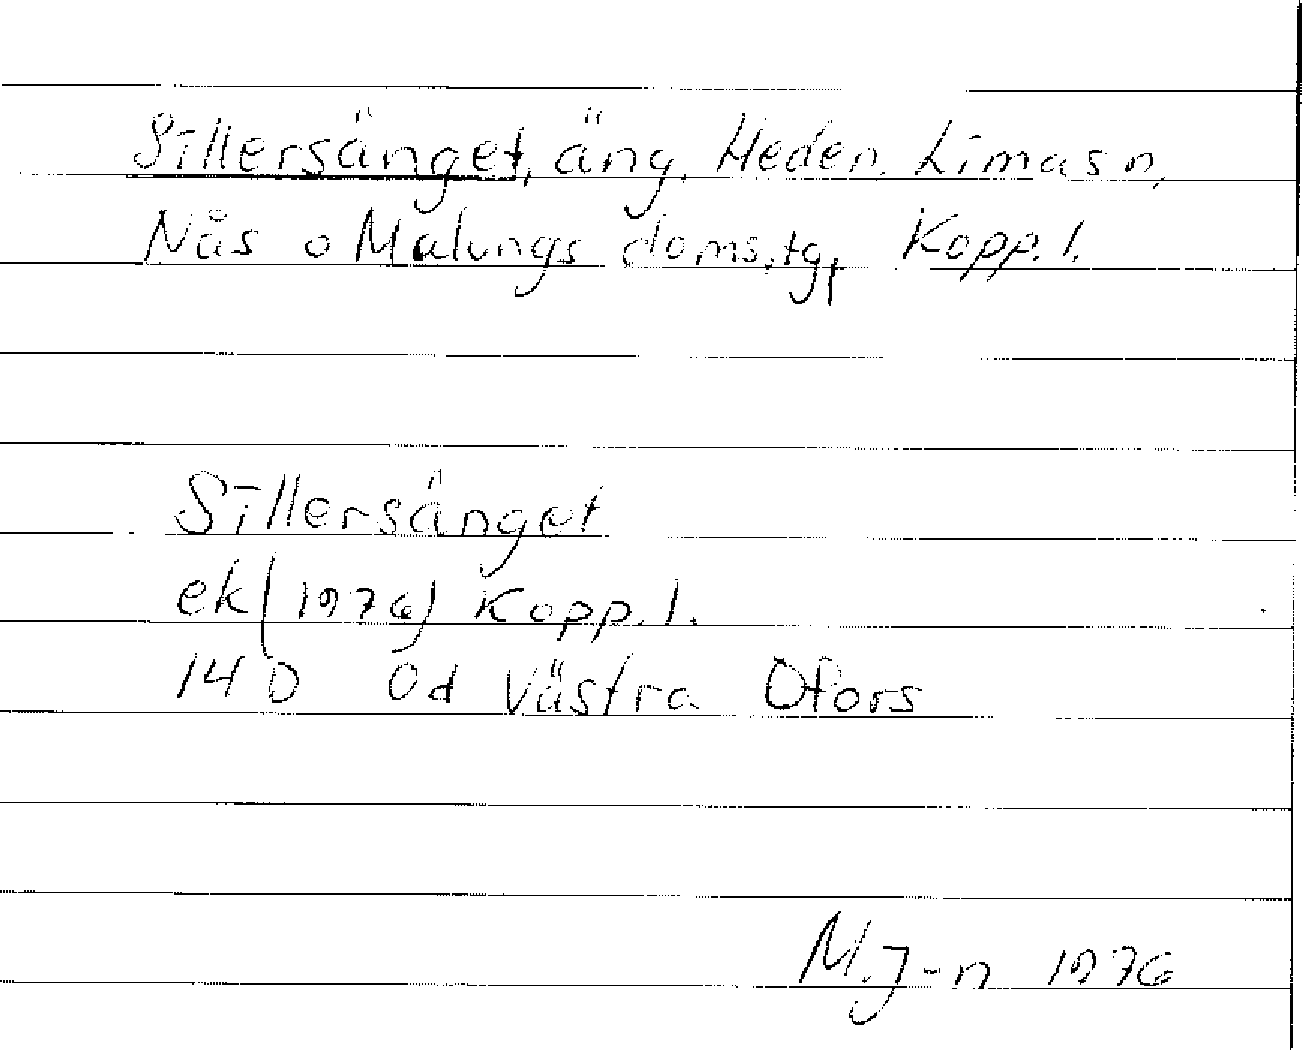 Sillersänget, äng, Heden, Lima sn,
Nås o Malungs doms.tg, Kopp. l.
Sillersänget
ek (1976) Kopp. l.
14 D 0d Västra Ofors
M.J-n 1976